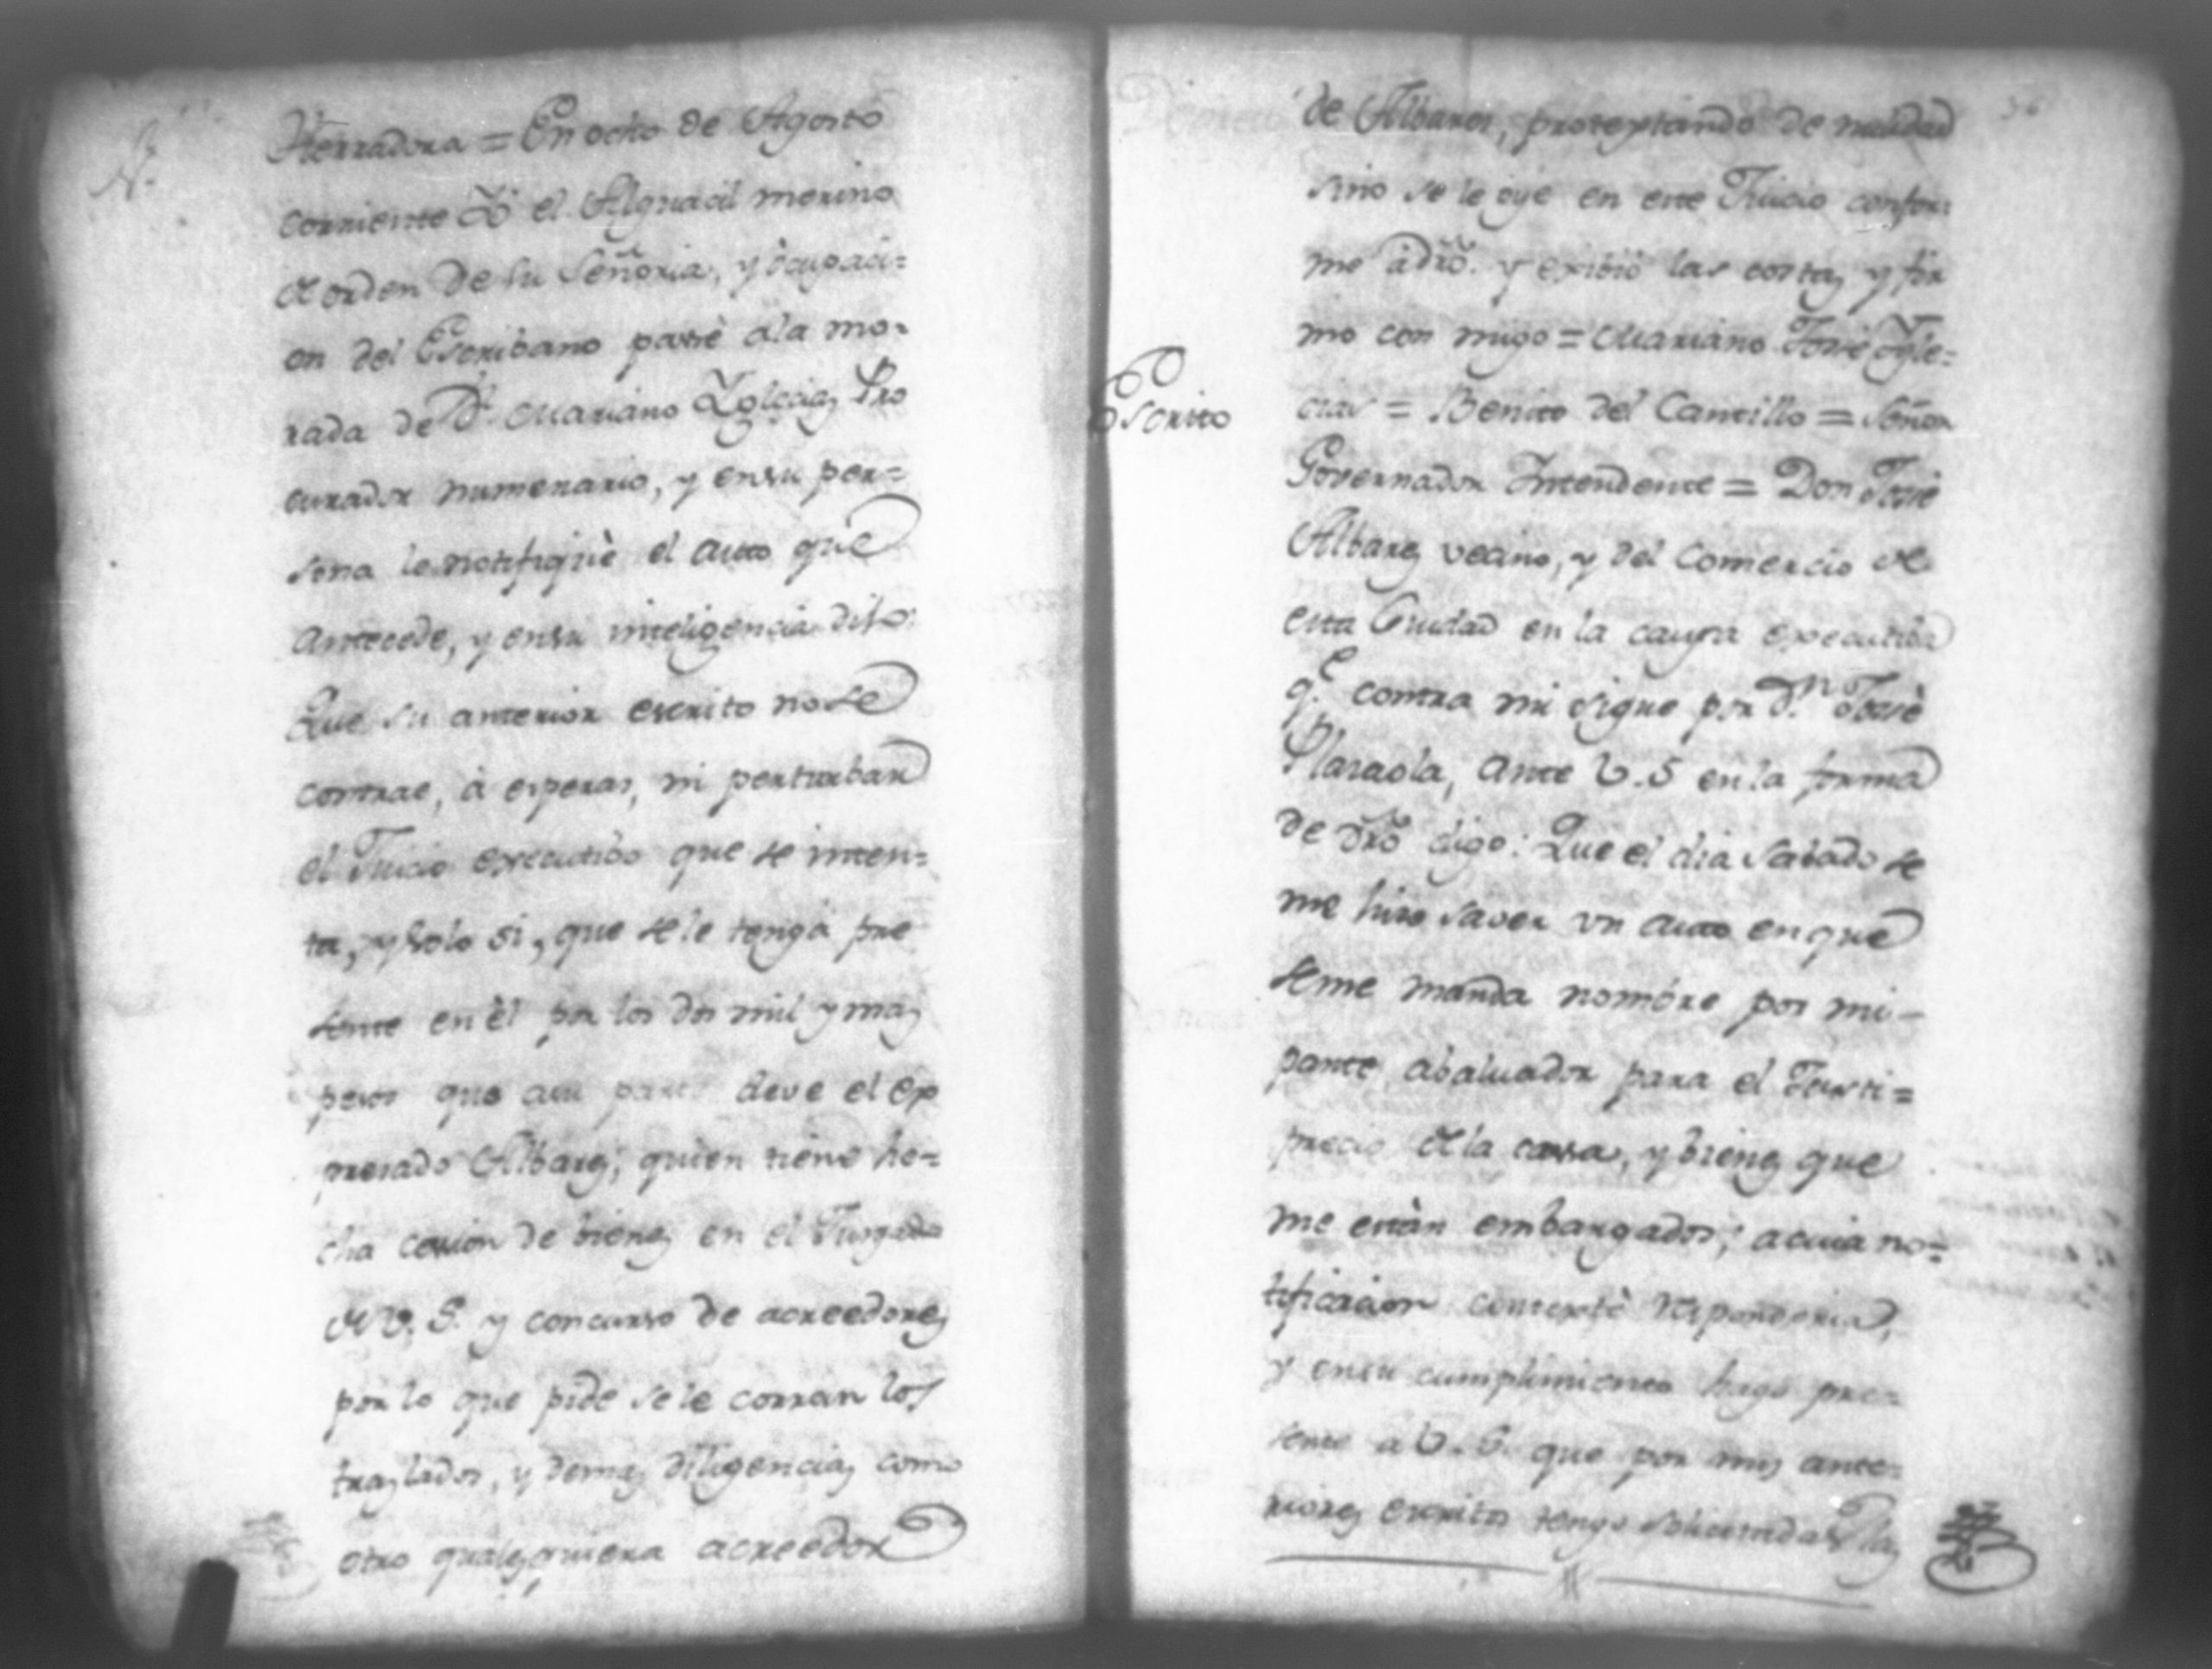 N.
Herradora = En ocho de Agosto
corriente Yo el Alguacil merino
de orden de su Señoria, y ocupaci=
on del Escribano passè ala mo=
rada de Dn. Mariano Yglecias Pro
curador numerario, y ensu per=
sona le notifiquè el auto que
antecede, y ensu inteligencia dixo:
Que su anterior escrito nose
contrae, à esperas, ni perturban
el Juicio executibo que se inten=
ta, y solo si, que sele tenga pre
sente en èl por los dos mil y mas
pesos que asu parte deve el ex
presado Albares, quien tiene he=
cha cesion de bienes en el Jusgado
de V. S. y concurso de acreedores
por lo que pide sele corran los
traslados, y demas diligencias como
otro qualesquiera acreedor
36
de Albares, protextando de nulidad
sino se le oye en este Juicio confor=
me àdro. y exibió las costas y fir
mo con migo = Mariano José Ygle=
cias = Benito del Cantillo = Señor
Escrito
Governador Intendente = Don Josè
Albares vecino, y del Comercio de
esta Ciudad en la causa executiba
qe. contra mi sigue por Dn. Josè
Plaraola, ante V. S en la forma
de dro digo: Que el dia sabado se
me hiso saver un auto enque
seme manda nombre por mi-
parte abaluador para el Justi=
precio de la casa, y bienes que
me estàn embargados; acuia no=
tificacion contextè responderia,
y ensu cumplimiento hago pre=
sente a V. S. que por mis ante=
riores escritos tengo solicitadas las